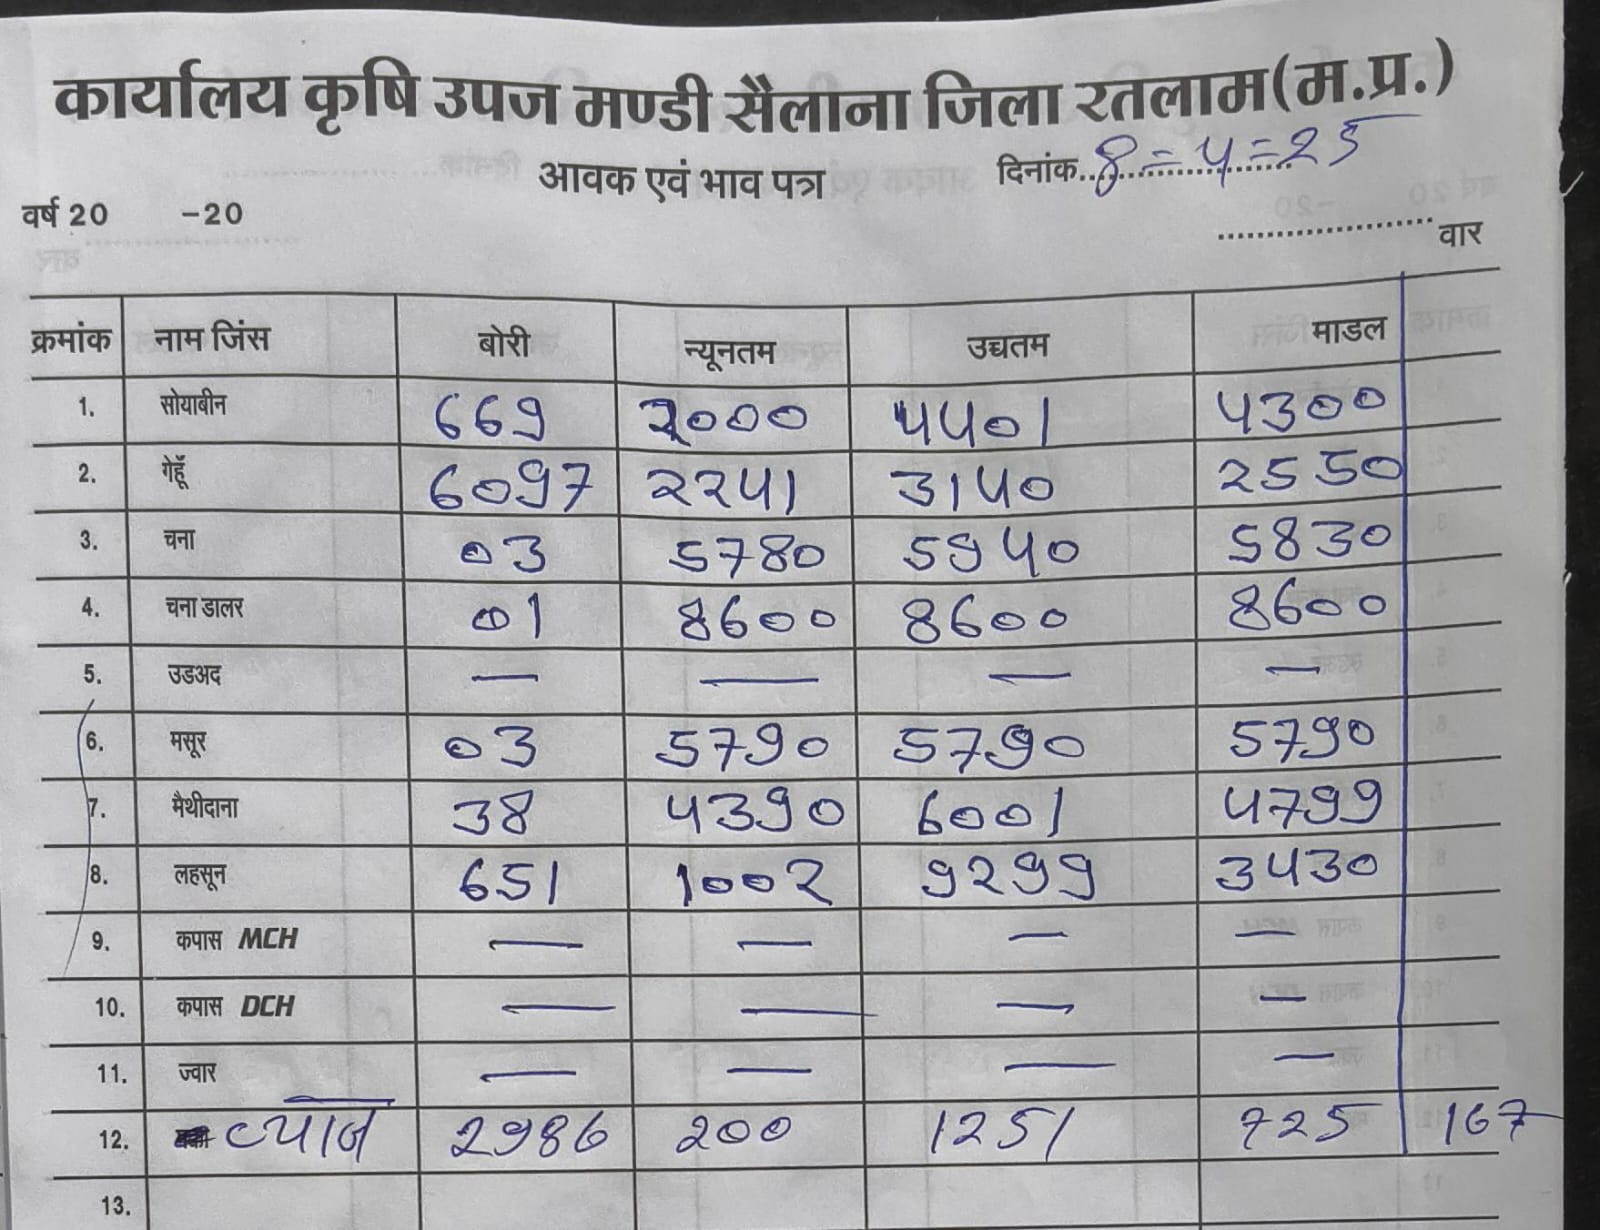 कार्यालय कृषि उपज मण्डी सैलाना जिला रतलाम(म.प्र.)
आवक एवं भाव पत्र दिनांक 8=4=25
वर्ष 20 -20
वार
क्रमांक नाम जिंस बोरी न्यूनतम उच्चतम माडल
1. सोयाबीन 669 2000 4401 4300
2. गेहूँ 6097 2241 3140 2550
3. चना 03 5780 5940 5830
4. चना डालर 01 8600 8600 8600
5. उडअद — — — —
6. मसूर 03 5790 5790 5790
7. मैथीदाना 38 4390 6001 4799
8. लहसून 651 1002 9299 3430
9. कपास MCH — — — —
10. कपास DCH — — — —
11. ज्वार — — — —
12. प्याज 2986 200 1251 725 167
13.